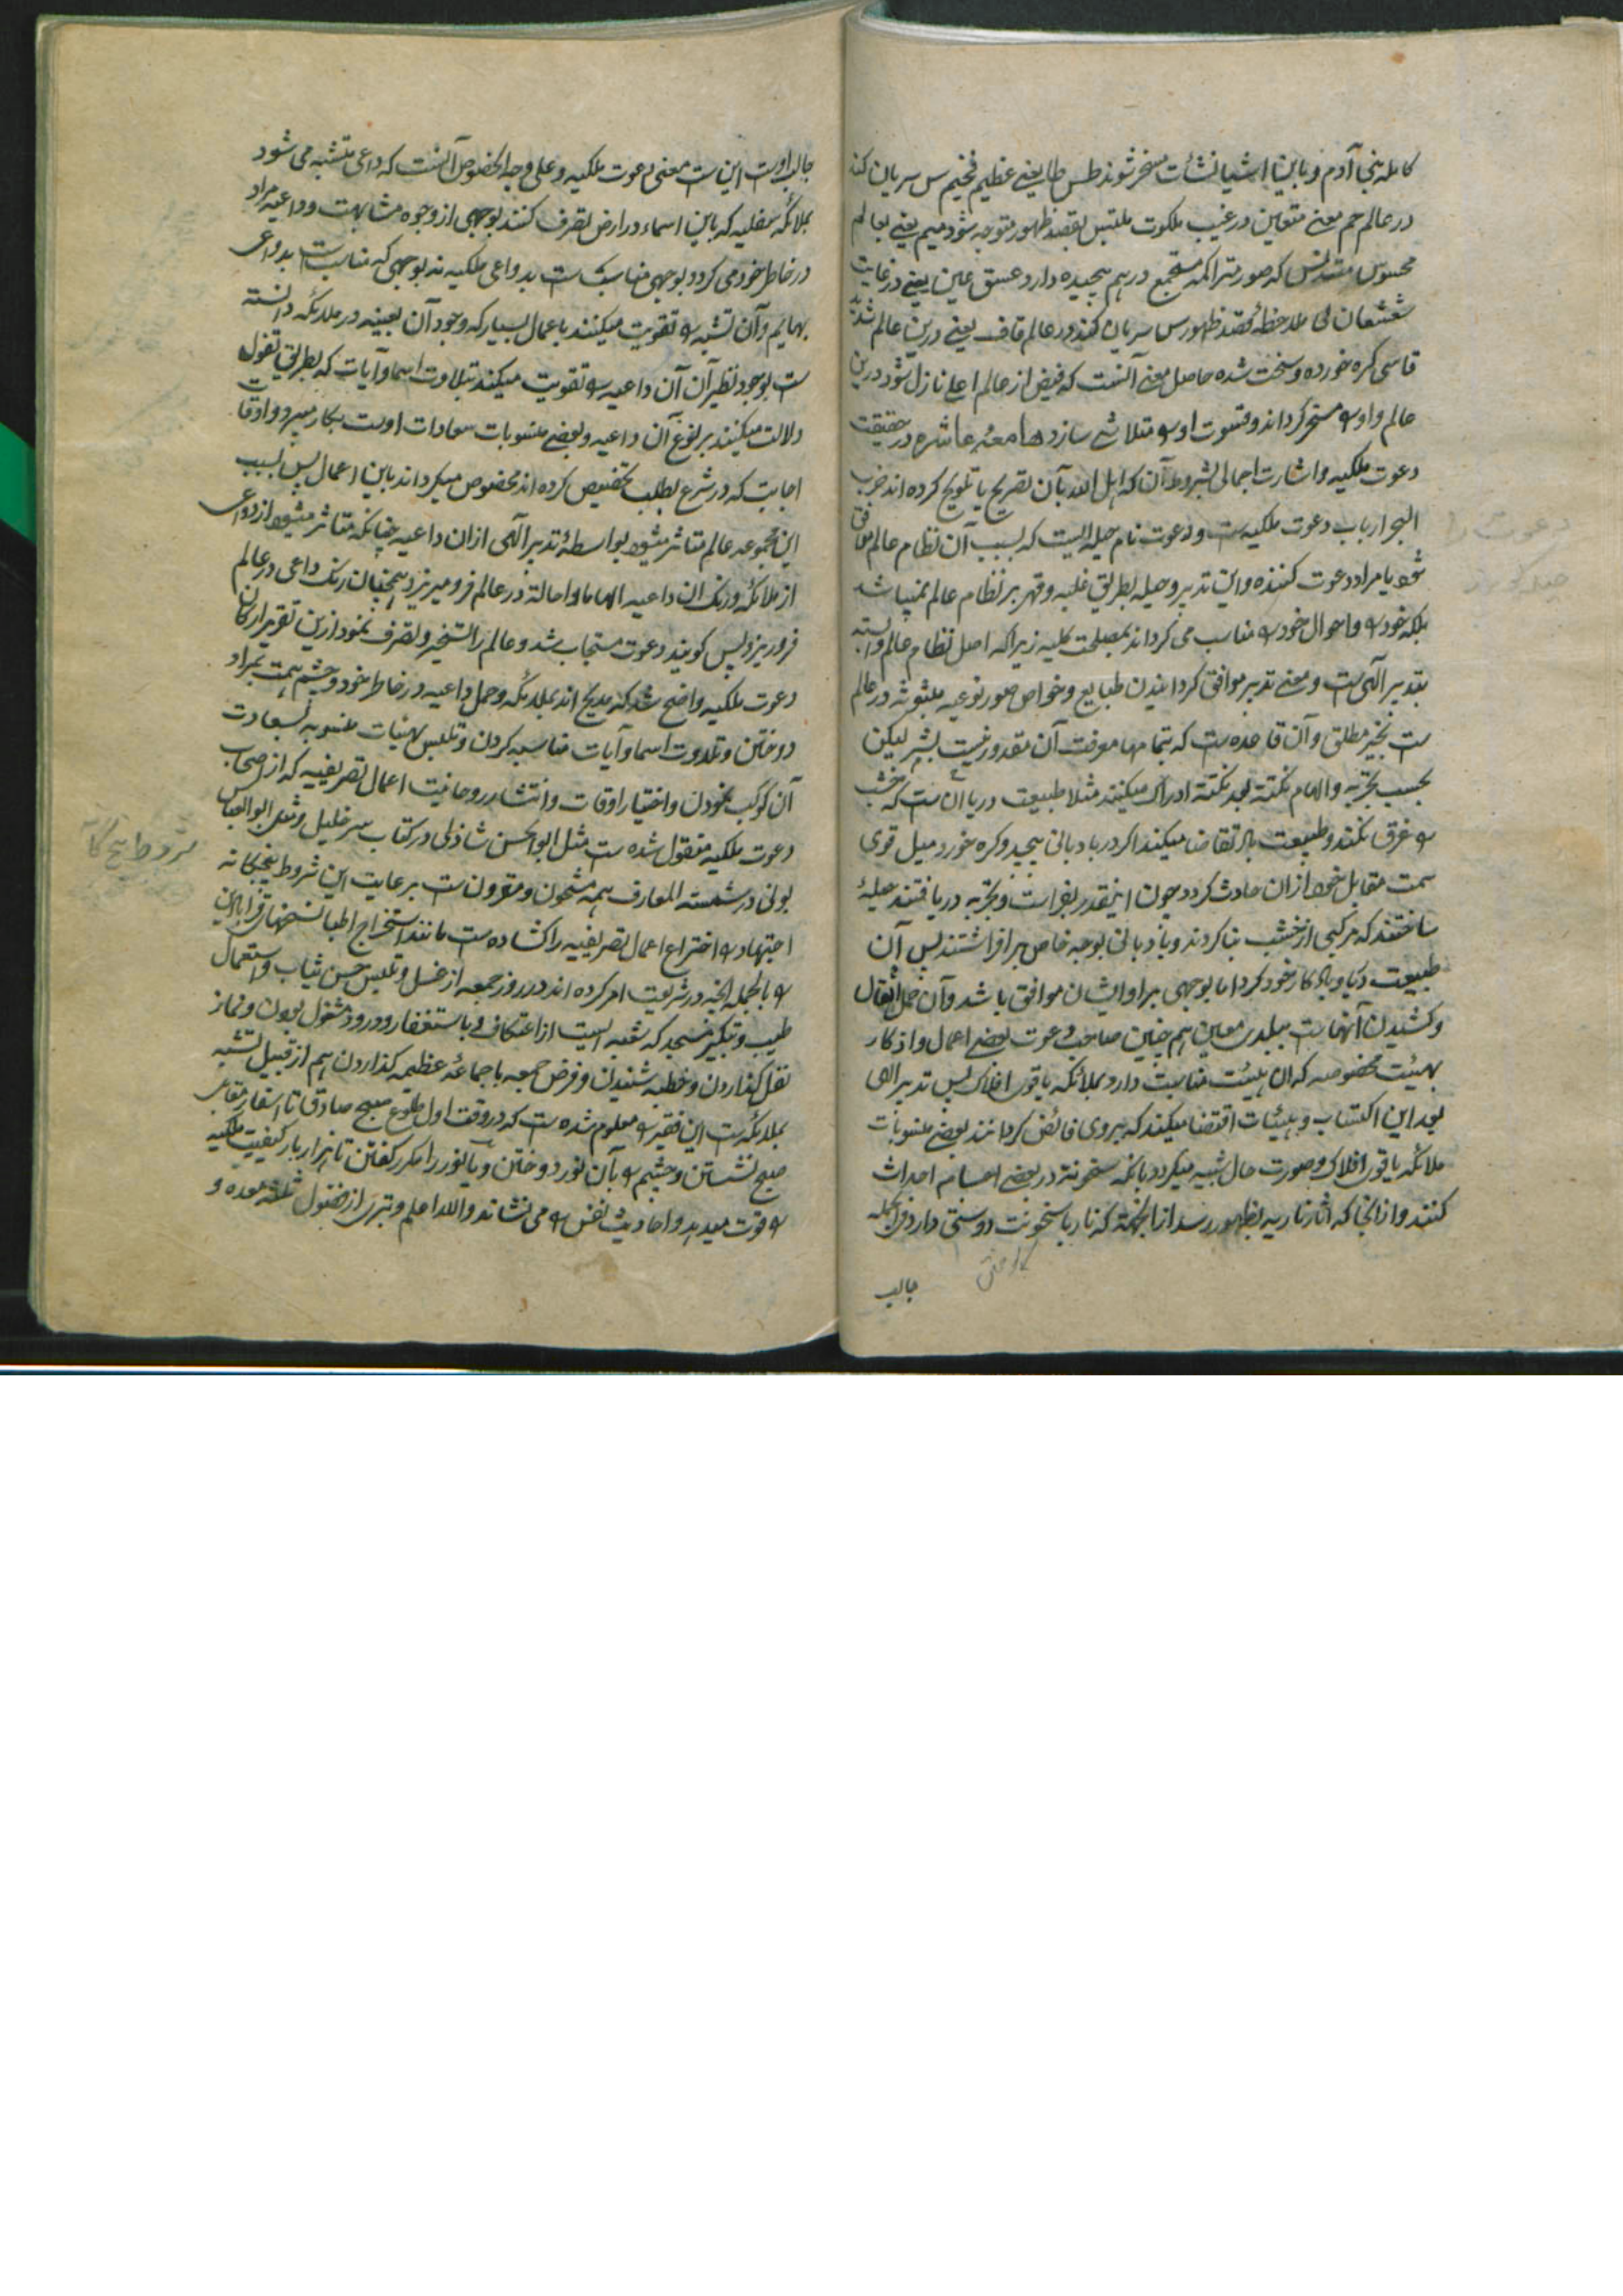 کامله بنجا آدم و باین اشیا نشأت مسخر شوند طس طا یعنے عظیم فخیم س سریان کند
در عالم حم معنے متعین در غیب ملکوت ملتبس بقصد ظهور متوجه شود میم یعنے بعالم
محسوس متدنس که صور متراکمه مستجمع در هم پیچیده دارد عسق عین یعنے در غایت
شعشعان لی ملاحظهٔ قصد ظهور س سریان کند در عالم قاف یعنے درین عالم
قاسی کره خورده و سخت شده حاصل معنے آنست که فیض از عالم اعلے نازل شود درین
عالم و او را مسخر کرداند و قسوت او را متلاشے سازد هامعهٔ عاشره در حقیقت
دعوت ملکیه و اشارت اجمالی بشروط آن که اهل الله بآن تصریح یا تلویح کرده اند حزب
البحر ارباب دعوت ملکیه ست و دعوت نام حیله ایست که بسبب آن نظام عالم موافق
شود با مراد دعوت کننده و این تدبیر و حیله بطریق غلبه و قهر بر نظام عالم نمیباشد
بلکه خود را و احوال خود را مناسب می کرداند بمصلحت کلیه زیرا که اصل نظام عالم وابسته
بتدبیر الٰهی ست و معنے تدبیر موافق کردانیدن طبایع و خواص صور نوعیه مبثوثه در عالم
ست بخیر مطلق و آن قاعده ست که بتمامها معرفت آن مقدور نیست بشر لیکن
بحسب تجربه و الهام نکتة بعد نکتة ادراک میکنند مثلا طبیعت دریا آن ست که خشب
را غرق نکند و طبیعت باد تقاضا میکند اکر در بادبانی پیچید و کره خورد میل قوی
سمت مقابل خود ازان حادث کردد چون اینقدر بفراست و تجربه دریافتند حیلهٔ
ساختند که مرکبی از خشب بنا کردند و بادبانی بوجه خاص برافراشتند پس آن
طبیعت دریا و باد کار خود کرد اما بوجهی بر او ایشان موافق باشد و آن حمل اثقال
و کشیدن آنهاست ببلدی معین هم چنین صاحب دعوت بعضے اعمال و اذکار
بهیئت مخصوصه که ان هیئت مناسبت دارد بملائکه یا قوی افلاک پس تدبیر الهی
بعد این اکتساب و هیئات اقتضا میکند که بروی فائض کردانند بعضے منسوبات
ملائکه یا قوی افلاک و صورت حال شبیه میکردد بانکه سخونة در بعضے اجسام احداث
کنند و ازانجا که آثار ناریه بظهور رسد از الجهة که نار با سخونت دوستی دارد فی الجمله
جالب
دعوت را
جالب اوست این ست معنی دعوت ملکیه و علی وجه الخصوص آنست که داعی متشبه می شود
بملائکهٔ سفلیه که باین اسماء در ارض تصرف کنند بوجهی از وجوه مشابهت و داعیه مراد
در خاطر خود می کردد بوجهی مناسبت ست بدواعی ملکیه نه بوجهی که مناسب ست بدواعی
بهایم و آن تشبه را تقویت میکنند باعمال بسیار که وجود آن بعینه در ملائکه دانسته
ست بوجود نظیر آن آن داعیه را تقویت میکنند بتلاوت اسما و آیات که بطریق تفول
دلالت میکنند بر بلوغ آن داعیه و بعضے منسوبات سعادات اوست بکار میبرد و اوقا
اجابت که در شرع بطلب تخصیص کرده اند مخصوص میکرداند باین اعمال پس بسبب
این مجموعه عالم متاثر میشود بواسطهٔ تدبیر الٰهی ازان داعیه چنانکه متاثر میشود از دواعی
از ملائکه و رنک ان داعیه الهاما و احالة در عالم فرو میریزد همچنان رنک داعی در عالم
فرو ریزد پس کویند دعوت مستجاب شد و عالم را تسخیر و تصرف نمود ازین تقریر ارکان
دعوت ملکیه واضح شد که بملائکه و حمل داعیه در خاطر خود و چشم همت بمراد
دوختن و تلاوت اسما و آیات مناسبه کردن و تلبس بهیئات منسوبه بسعادت
آن کوکب نمودن و اختیار اوقات و انتشار روحانیت اعمال تصریفیه که از اصحاب
دعوت ملکیه منقول شده ست مثل ابوالحسن شاذلی در کتاب سر خلیل و مثل ابوالعباس
بونی در شمسته المعارف همه مشحون و مقرون ست برعایت این شروط پنجکانه
اجتهاد را اختراع اعمال تصریفیه را کشاده ست مانند استخراج اطبا نسخهای قرابادین
را بالجمله آنچه در شریعت امر کرده اند در روز جمعه از غسل و تلبس حسن ثیاب و استعمال
طیب و تبکیر مسجد که شعبه ایست از اعتکاف و باستغفار و درود مشغول بودن و نماز
نفل کذاردن و خطبه شنیدن و فرض جمعه با جماعهٔ عظیمه کذاردن هم از قبیل تشبه
بملائکه ست این فقیر را معلوم شده ست که در وقت اول طلوع صبح صادق تا اسفار مقابل
صبح نشستن و چشم را بآن نور دوختن و یا نور را مکرر کفتن تا هزار بار کیفیت ملکیه
را قوت میدهد و احادیث نفس را می نشاند و الله اعلم و تبری از فضول ثلثه معده و
شروط پنج گا